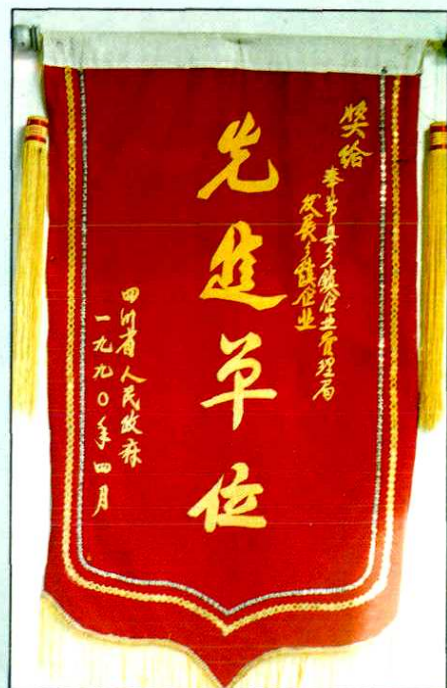 奖给
奉节县乡镇企业管理局
发展乡镇企业
先进单位
四川省人民政府
一九九〇年四月